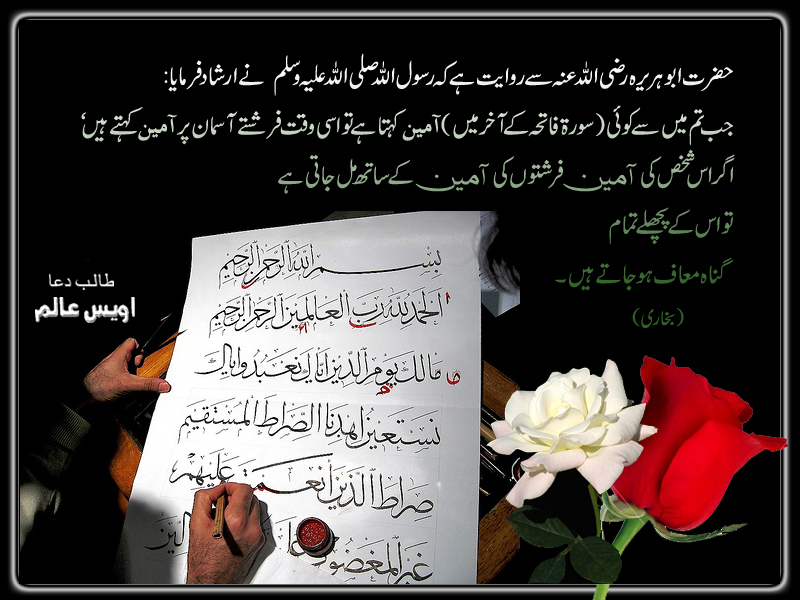 حضرت ابو ہریرہ رضی اللہ عنہ سے روایت ہے کہ رسول اللہ صلی اللہ علیہ وسلم نے ارشاد فرمایا:
جب تم میں سے کوئی (سورۃ فاتحہ کے آخر میں) آمین کہتا ہے تو اسی وقت فرشتے آسمان پر آمین کہتے ہیں،
اگر اس شخص کی آمین فرشتوں کی آمین کے ساتھ مل جاتی ہے
تو اس کے پچھلے تمام
گناہ معاف ہو جاتے ہیں۔
(بخاری)
طالب دعا
اویس عالم
بسم الله الرحمن الرحيم
الحمد لله رب العالمين الرحمن الرحيم
مالك يوم الدين اياك نعبد واياك
نستعين اهدنا الصراط المستقيم
صراط الذين انعمت عليهم
غير المغضوب